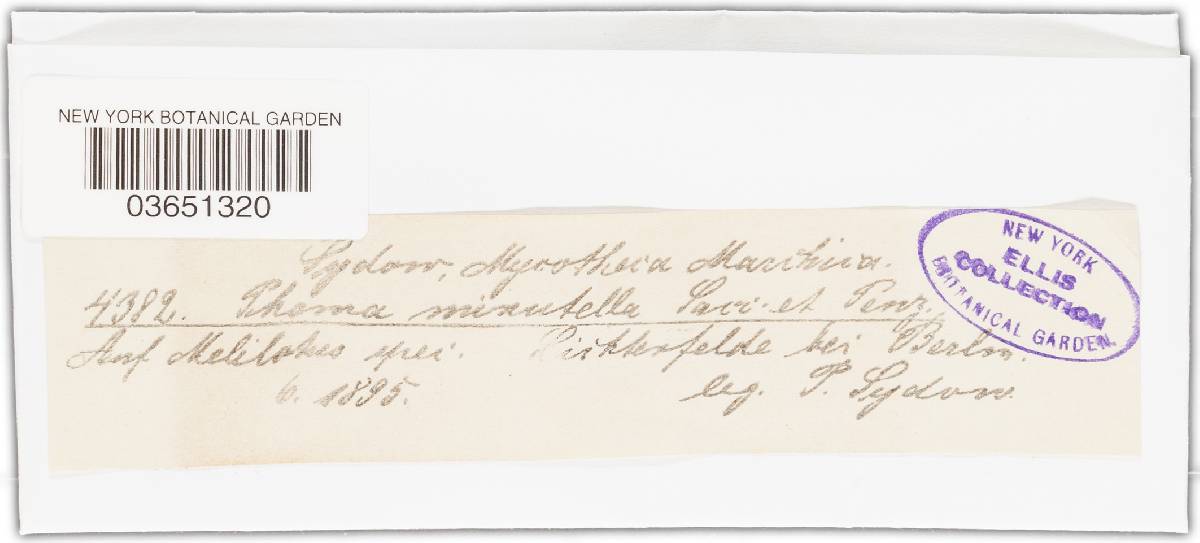 NEW YORK BOTANICAL GARDEN
03651320
Sydow, Mycotheca Marchica.
4382. Phoma minutella Sacc. et Penz.
Auf Melilotus spec. Lichterfelde bei Berlin.
6. 1895. leg. P. Sydow.
NEW YORK
ELLIS
COLLECTION
BOTANICAL GARDEN